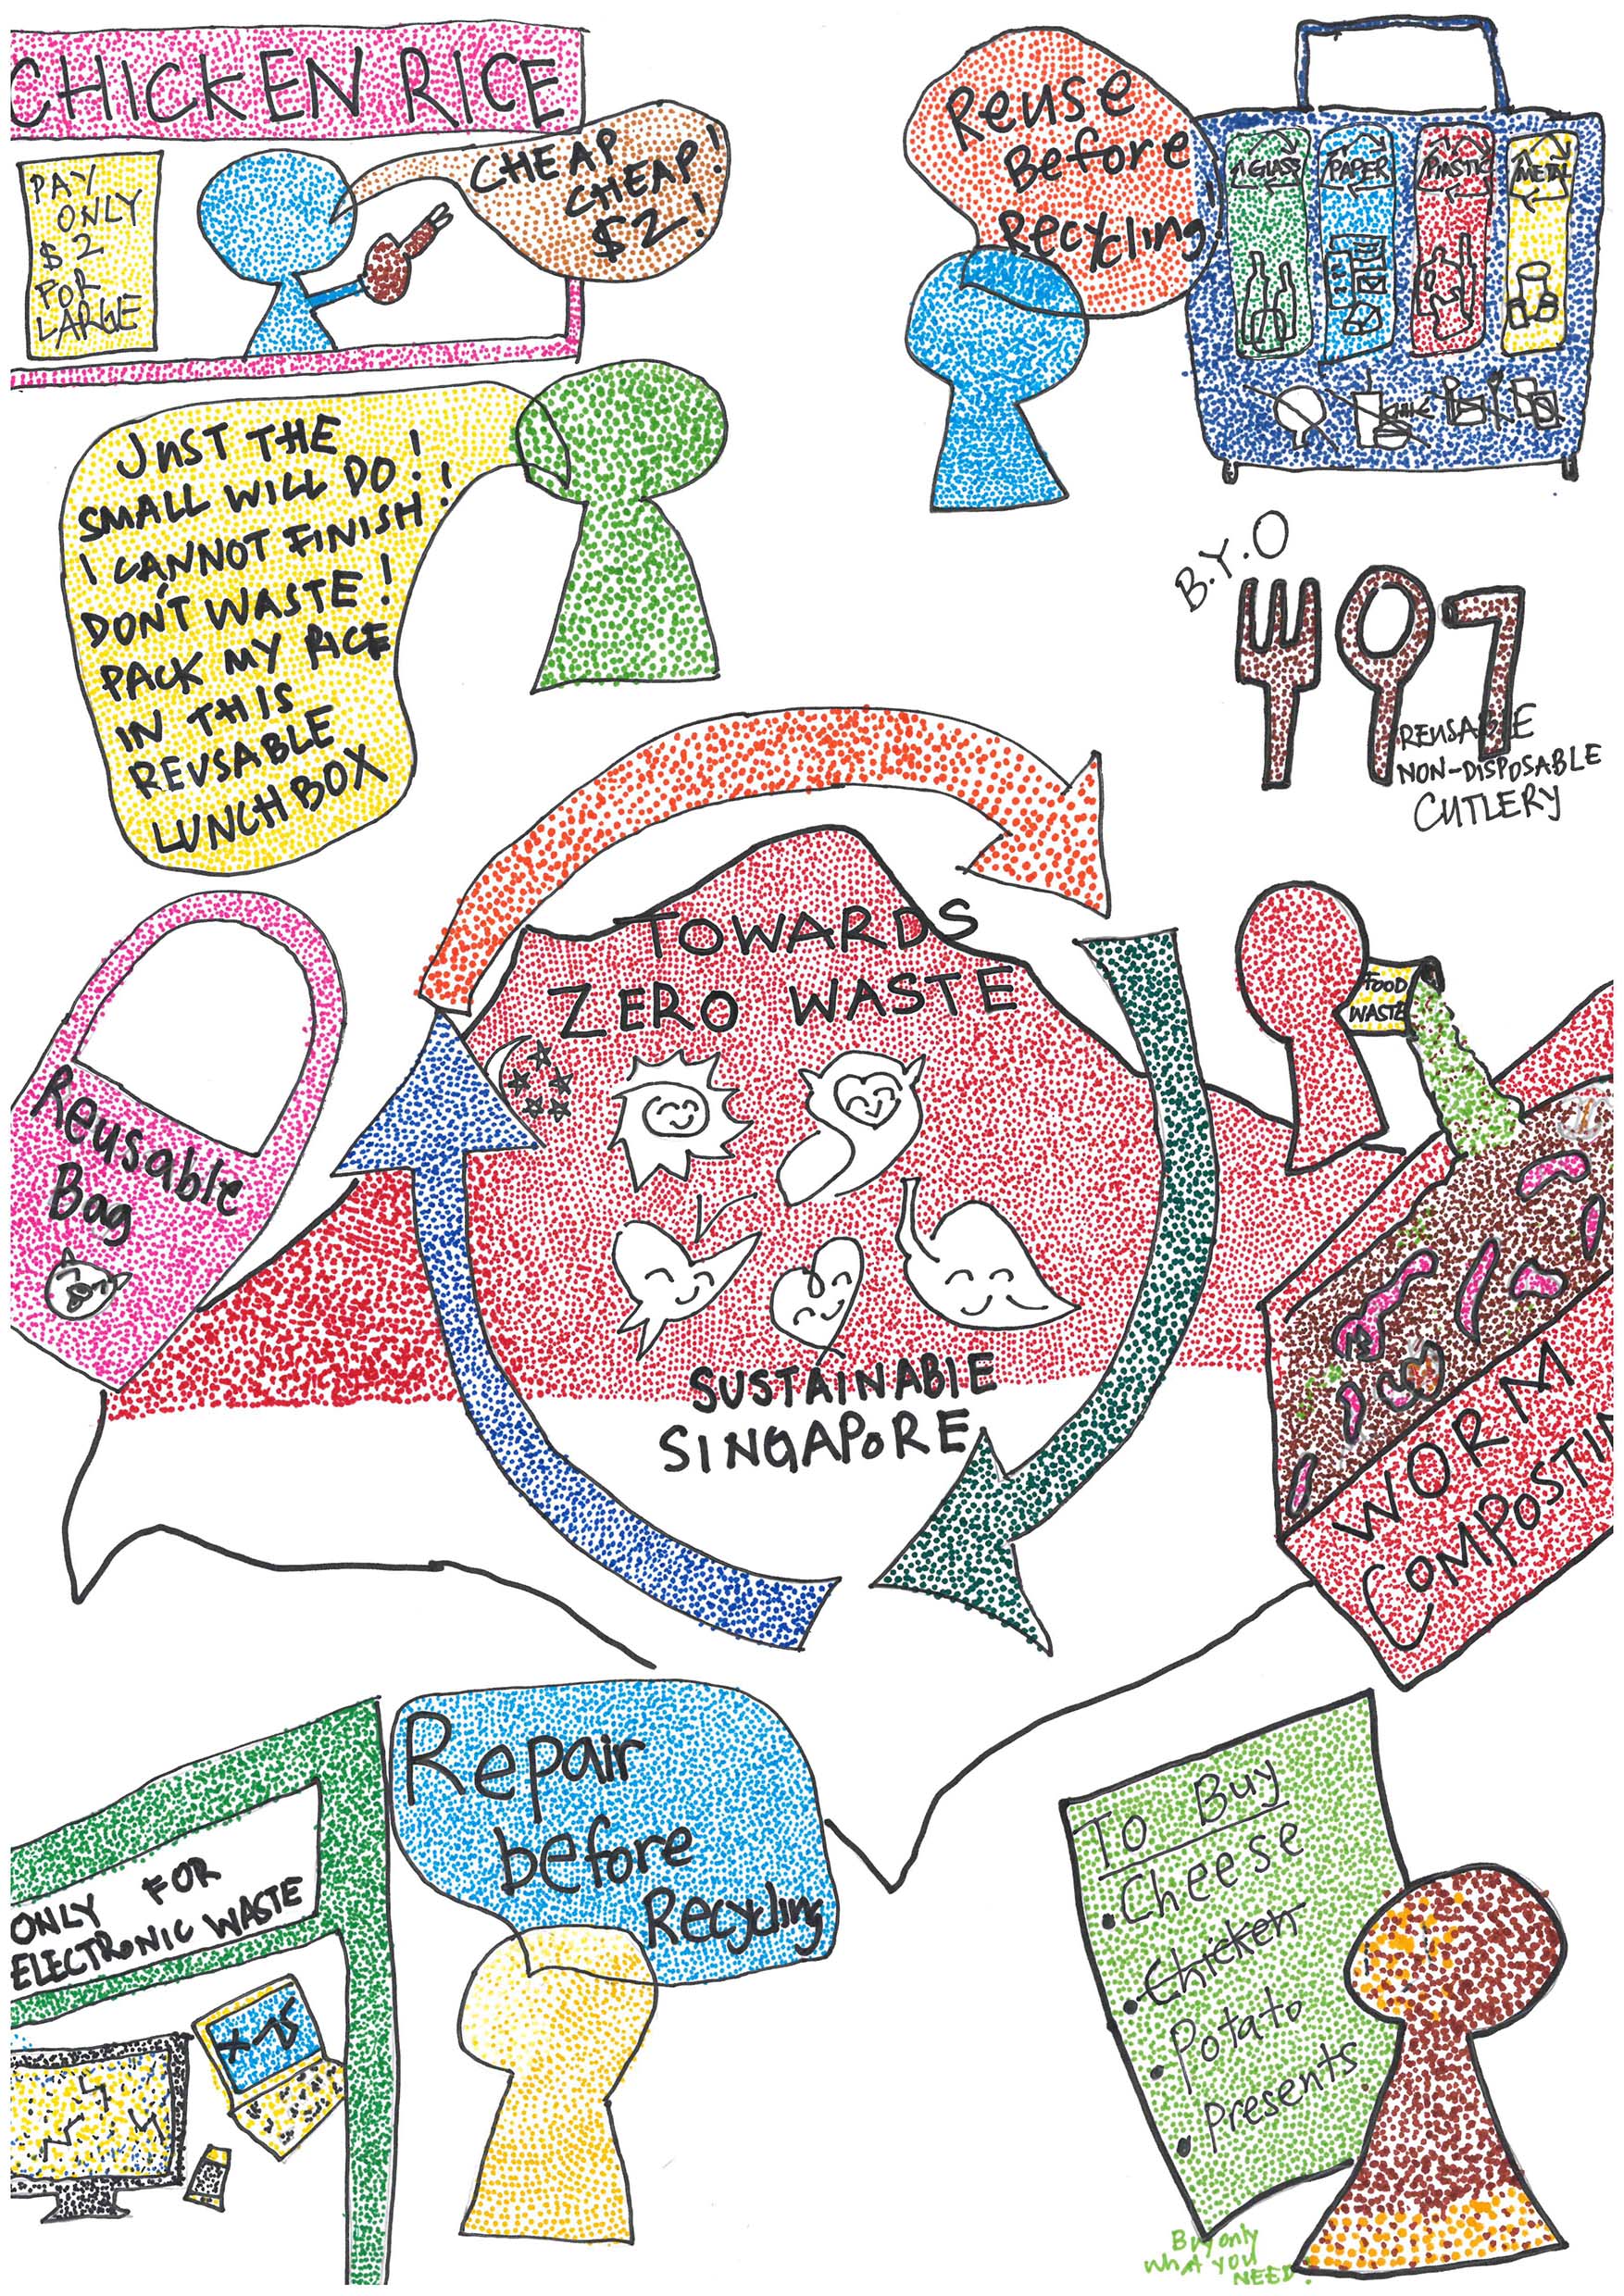 CHICKEN RICE
PAY
ONLY
$2
FOR
LARGE
CHEAP
CHEAP!
$2!
JUST THE
SMALL WILL DO!
I CANNOT FINISH!
DON'T WASTE!
PACK MY RICE
IN THIS
REUSABLE
LUNCH BOX
Reuse
Before
Recycling!
GLASS
PAPER
PLASTIC
METAL
B.Y.O
REUSABLE
NON-DISPOSABLE
CUTLERY
TOWARDS
ZERO WASTE
SUSTAINABLE
SINGAPORE
Reusable
Bag
FOOD
WASTE
WORM
COMPOSTIN
Repair
before
Recycling
ONLY FOR
ELECTRONIC WASTE
To Buy
• Cheese
• Chicken
• Potato
• Presents
Buy only
WHAT YOU
NEED!